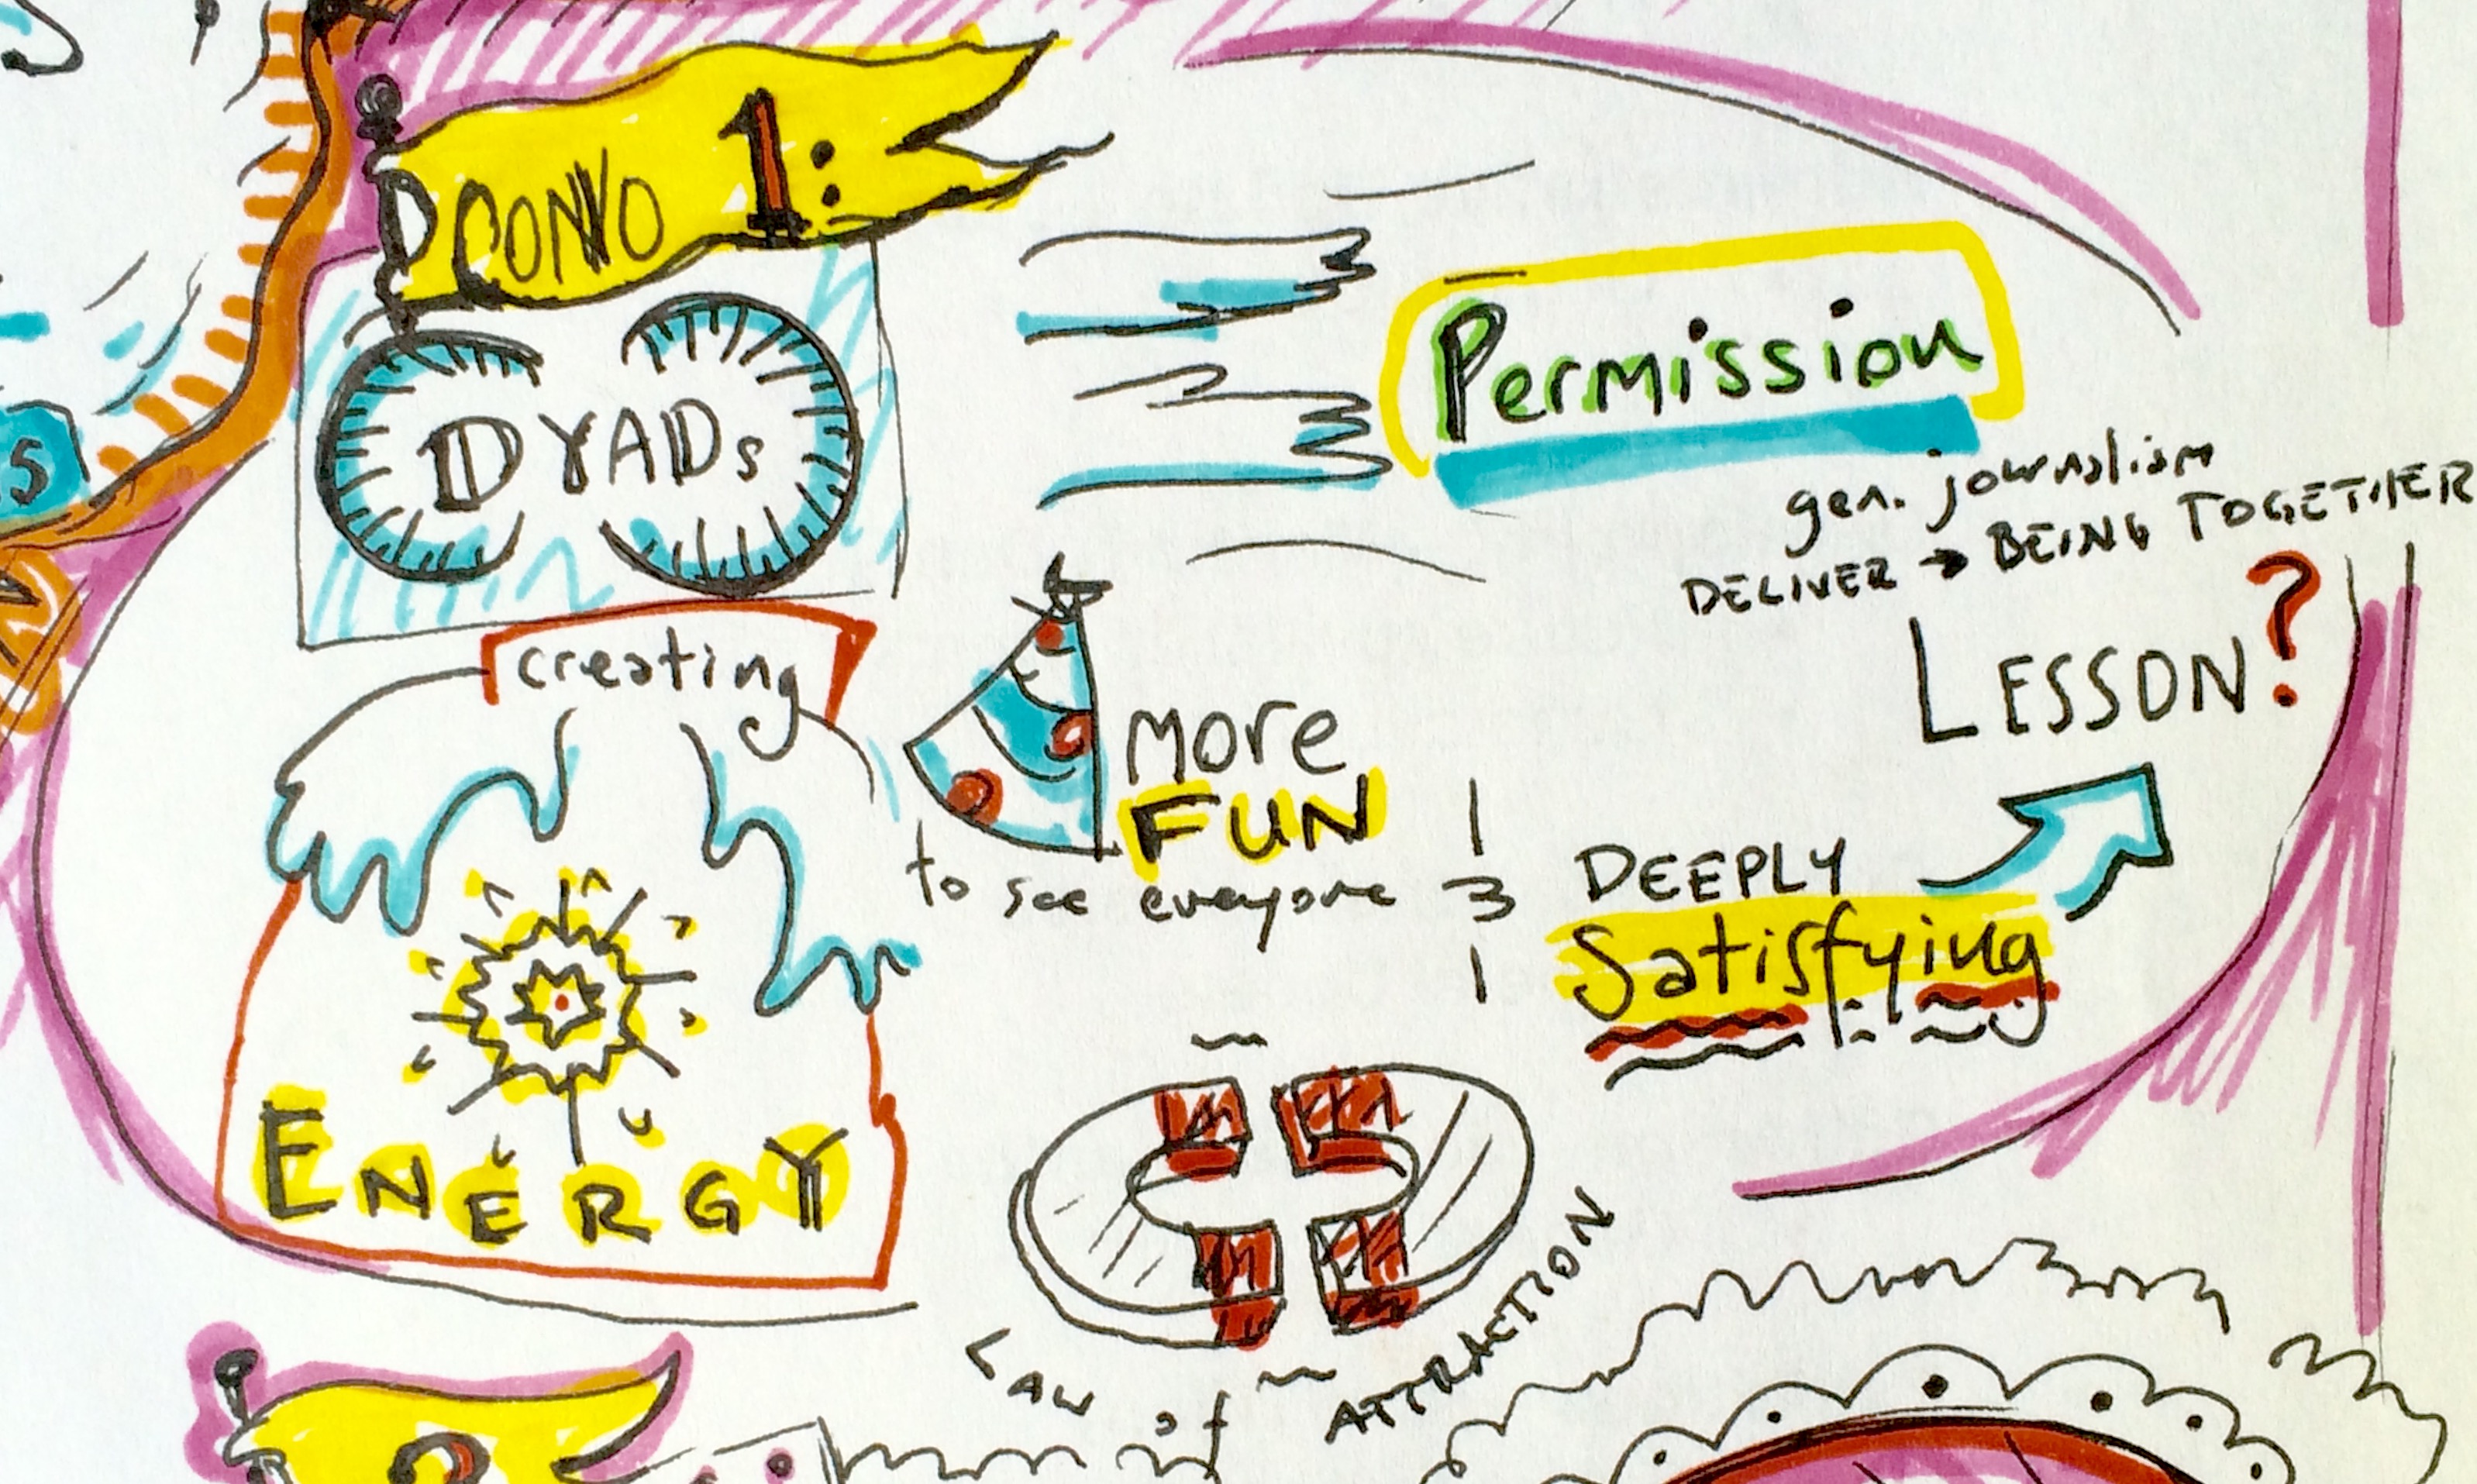 CONVO 1:
DYADs
creating
ENERGY
Permission
gen. journalism
DELIVER → BEING TOGETHER
LESSON?
more
FUN
to see everyone
DEEPLY
Satisfying
LAW of ATTRACTION
2
S